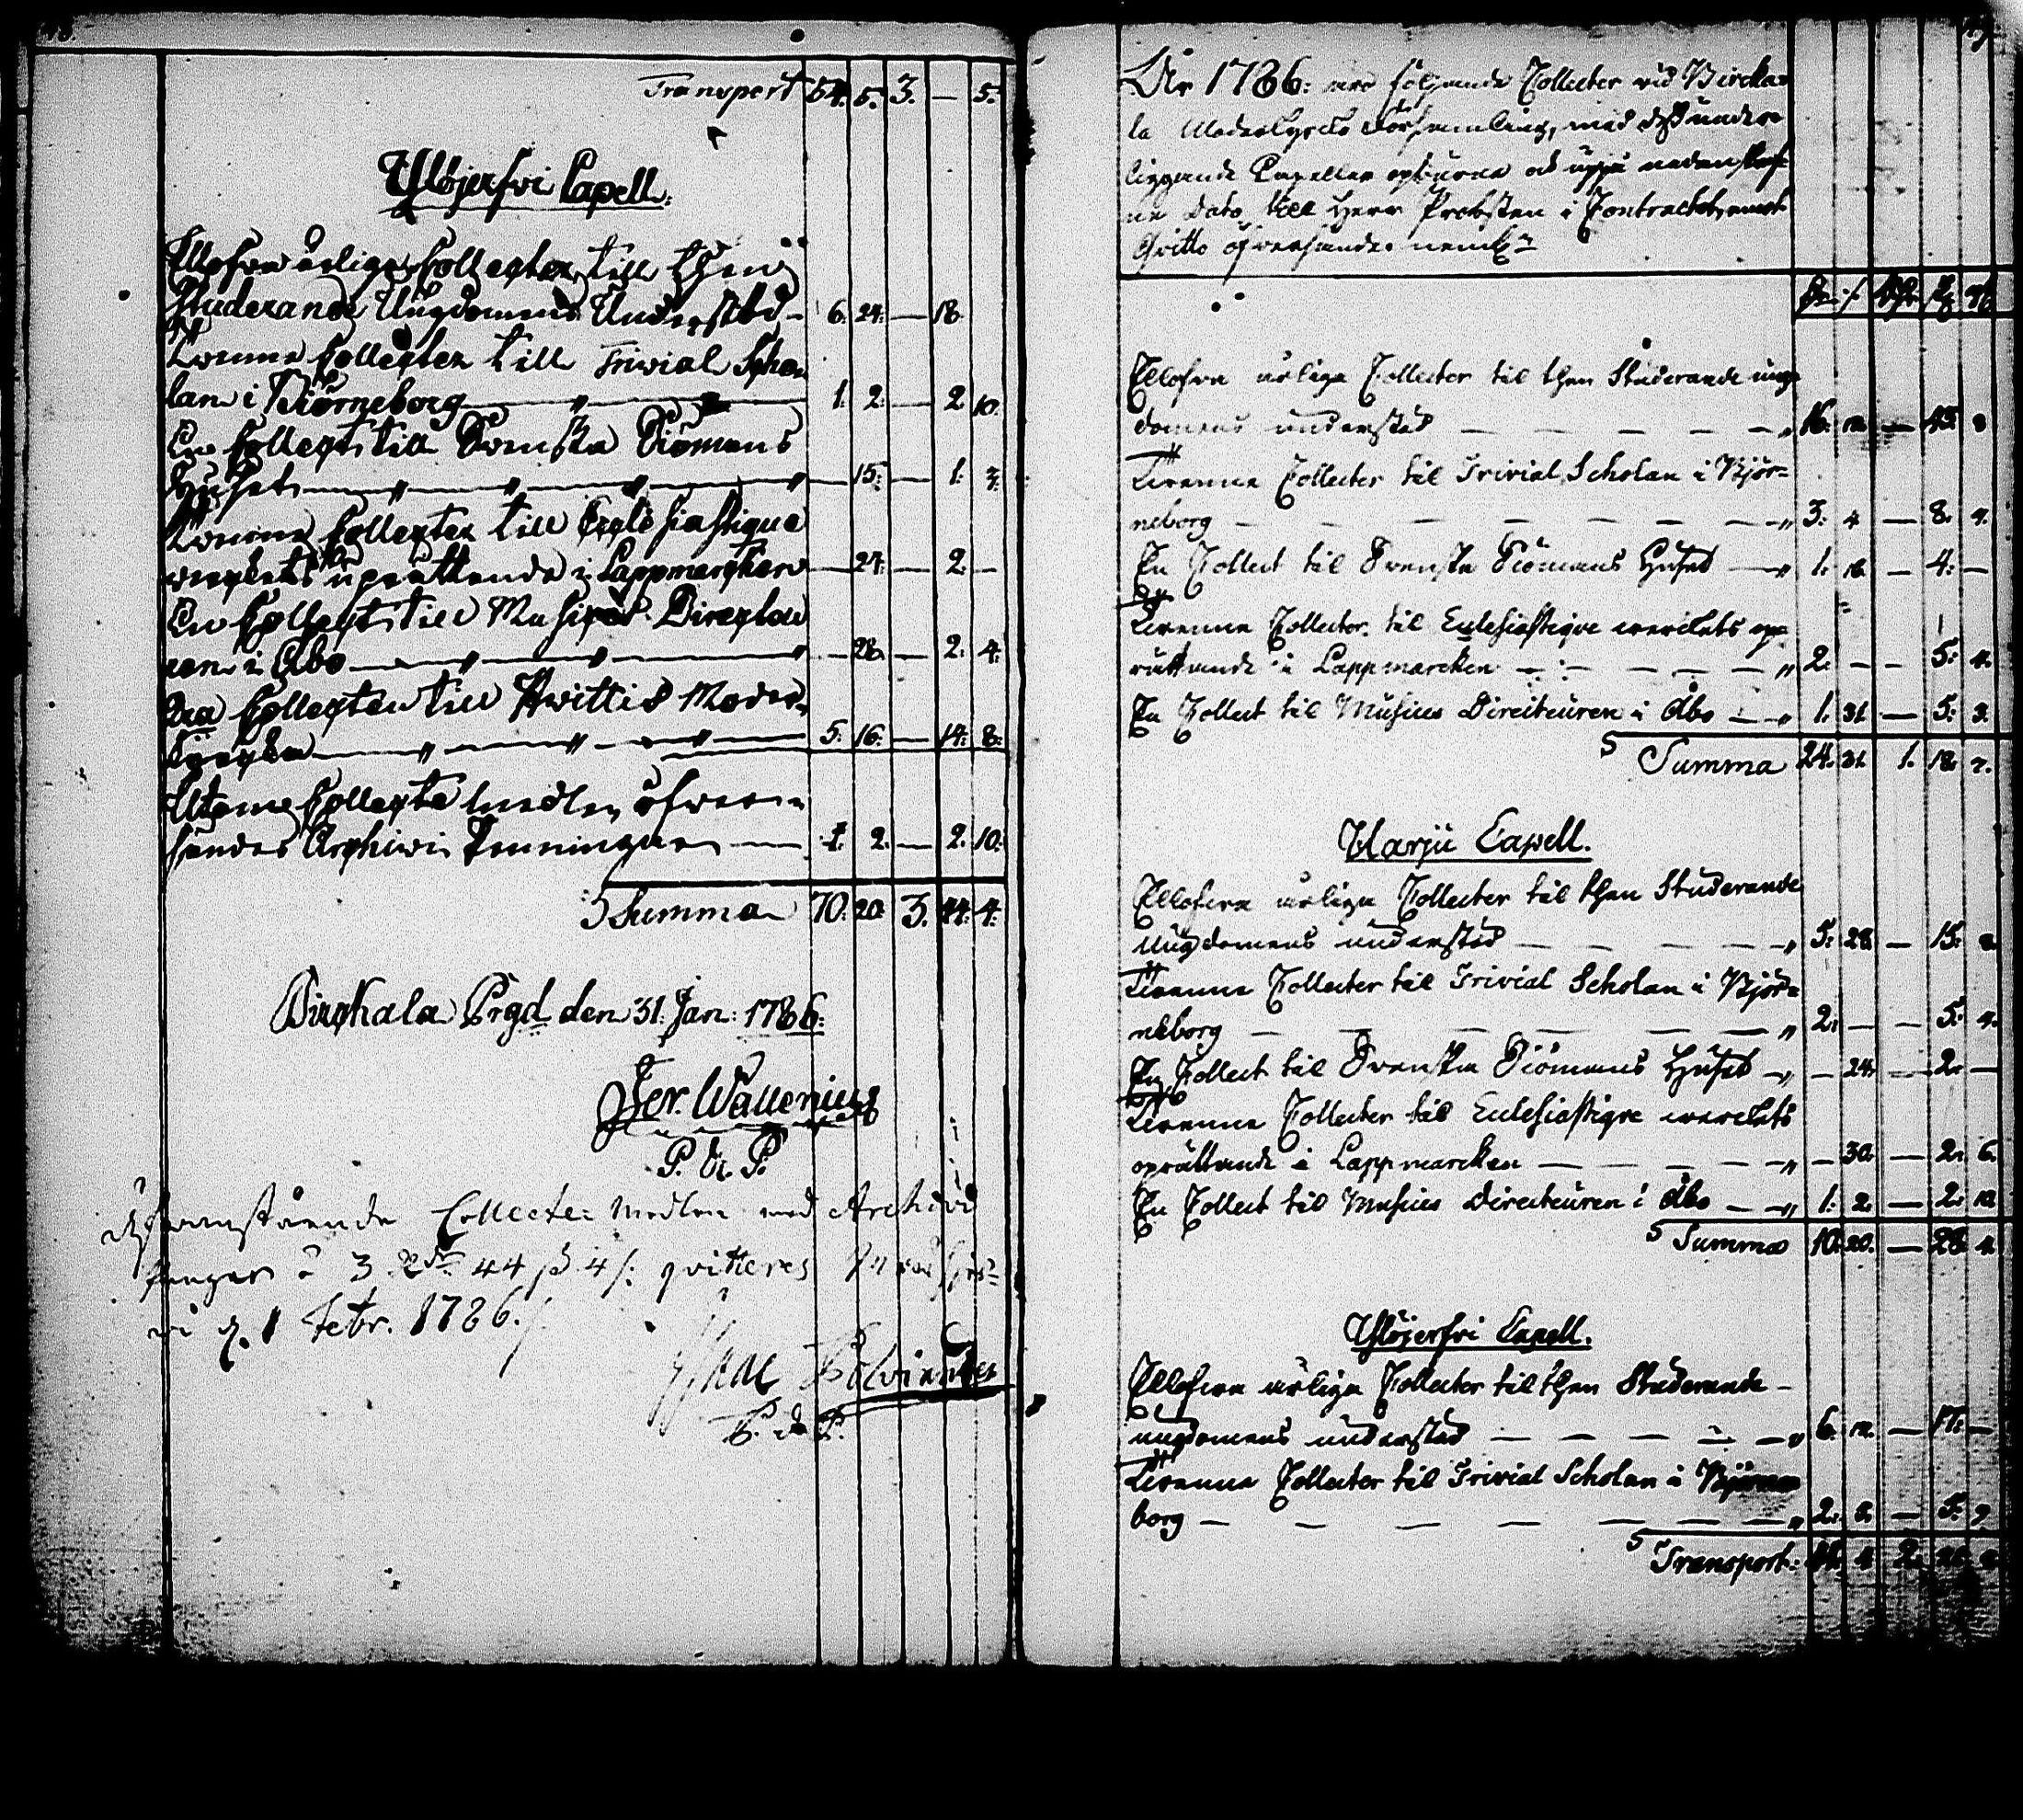 Transport 54. 5. 3. — 5.
Ylöjerfvi Capell.
Ellofva årliga Collecter till then
Studerande Ungdomens Understöd — 6. 24. — 18.
Twenne Collecter till Trivial Scho-
lan i Biörneborg — 1. 2. — 2. 10.
En Collect till Swenska Siömans
Huset — 15. — 1. 3.
Twenne Collecter till Ecclesiastique
werckets uprättande i Lappmarcken — 24. — 2. —
En Collect till Musices Directeu
ren i Åbo — 28. — 2. 4.
Collecten till Hwittis Moder
Kyrcka — 5. 16. — 14. 8.
Utom Collecte medlen öfwer-
sändes Archivi Penningar — 1. 2. — 2. 10.
Summa 70. 20. 3. 44. 4.
Birckala Prgd den 31. Jan: 1786.
Jer. Wallenius
P. & P.
Ofvanstående Collecte Medlen med Archivi
pengar à 3 Rdr 44 ß 4 /: qvitteras
d. 1 Febr. 1786.
P. & P.
År 1786: äro följande Collecter vid Bircka-
la Moderkyrcko Församling, med dess under-
liggande Capeller opburne och uppå nedanskref-
ne Dato till Herr Probsten i Contractet, emot
Qvitto öfversände neml:n
Ellofva årliga Collecter til then Studerande ung-
domens understöd — 16. 12. — 43. 8.
Tvenne Collecter til Trivial Scholan i Björ-
neborg — 3. 4. — 8. 4.
En Collect til Svenska Siömans Huset — 1. 16. — 4. —
Tvenne Collecter til Ecclesiastiqve werckets op-
rättande i Lappmarcken — 2. — — 5. 4.
En Collect til Musices Directeuren i Åbo — 1. 31. — 5. 3.
Summa 24. 31. 1. 18. 7.
Harju Capell.
Ellofva årliga Collecter til then Studerande
Ungdomens understöd — 5. 28. — 15. 8.
Tvenne Collecter til Trivial Scholan i Björ-
neborg — 2. — — 5. 4.
En Collect til Svenska Siömans Huset — 24. — 2. —
Tvenne Collecter til Ecclesiastiqve werckets
oprättande i Lappmarcken — 30. — 2. 6.
En Collect til Musices Directeuren i Åbo — 1. 2. — 2. 10.
Summa 10. 20. — 28. 4.
Ylöjerfvi Capell.
Ellofva årliga Collecter til then Studerande
ungdomens understöd — 6. 12. — 17. —
Tvenne Collecter til Trivial Scholan i Björne
borg — 2. 5. — 5. 9.
Transport: